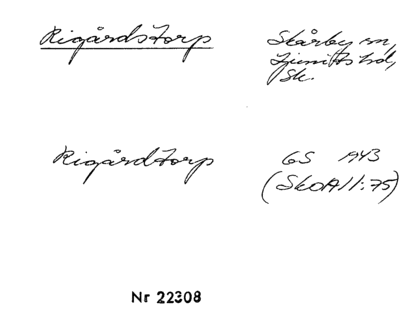 Rigårdstorp
Skårby sn,
Ljunits hd,
Sk.
Rigårdtorp
GS 1943
(SkOA11:75)
Nr 22308